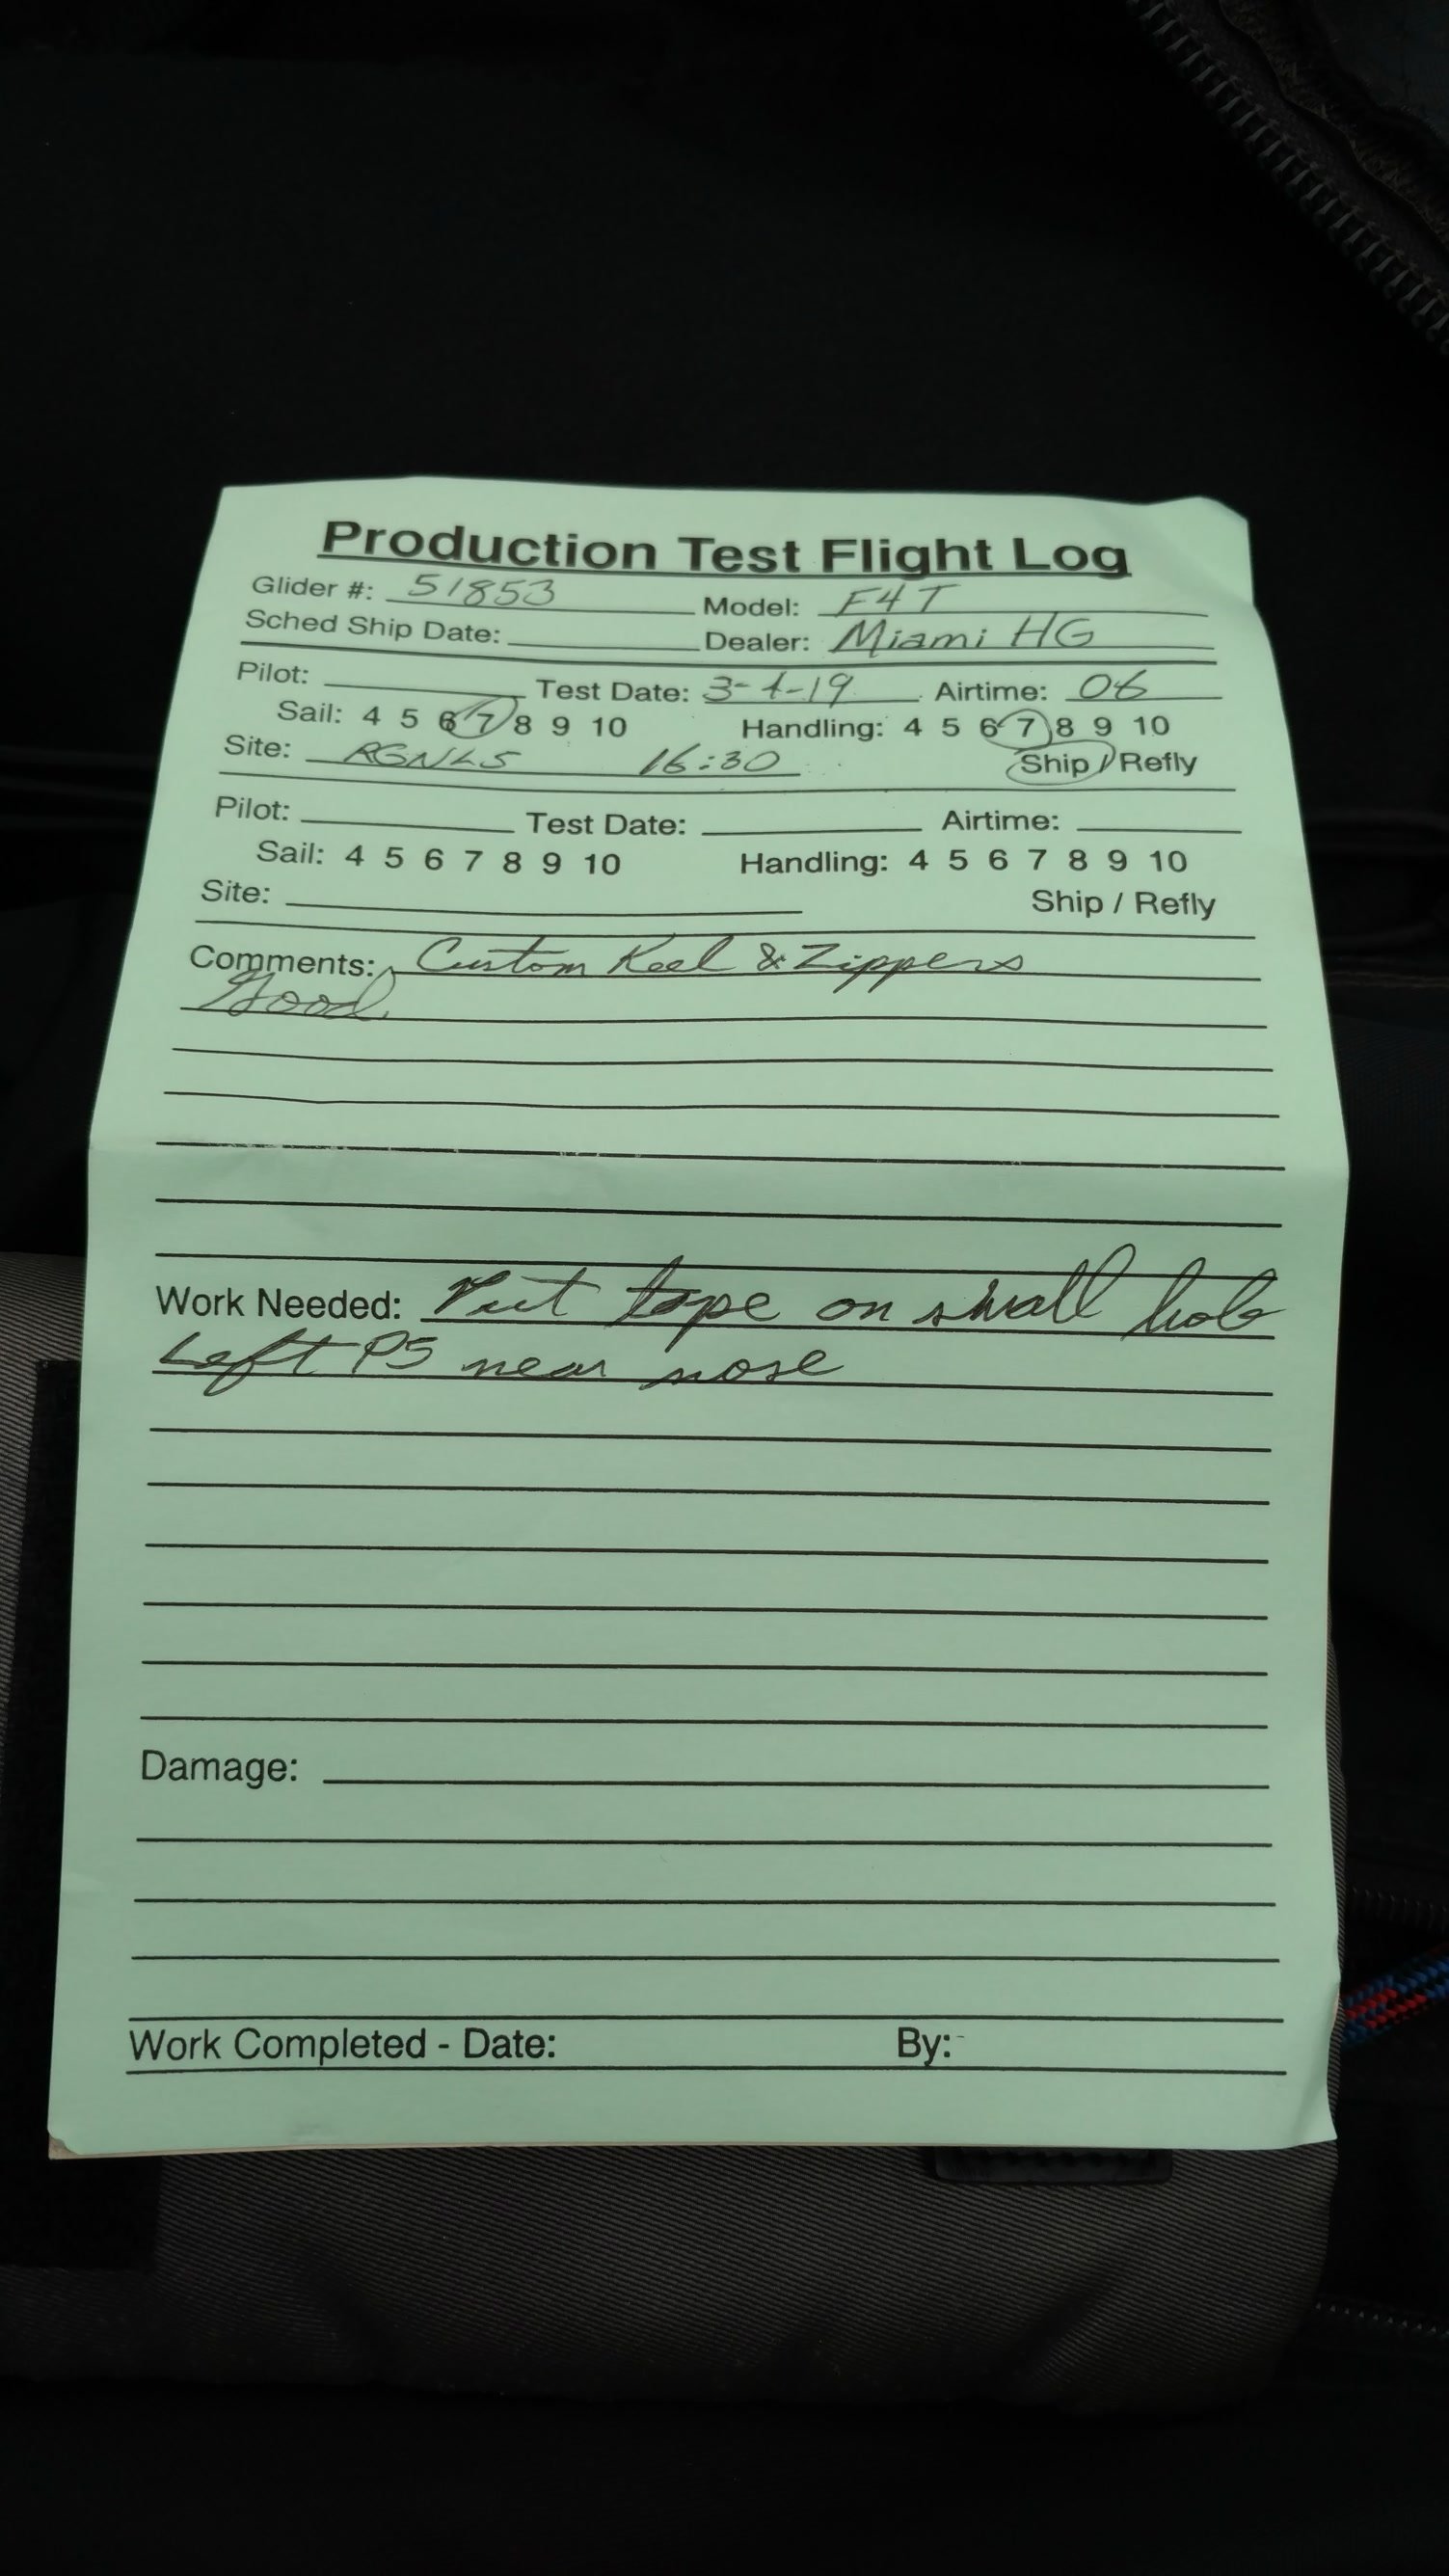 Production Test Flight Log
Glider #: 51853 Model: F4T
Sched Ship Date: Dealer: Miami HG
Pilot: Test Date: 3-1-19 Airtime: 06
Sail: 4 5 6 7 8 9 10 Handling: 4 5 6 7 8 9 10
Site: 16:30 Ship / Refly
Pilot: Test Date: Airtime:
Sail: 4 5 6 7 8 9 10 Handling: 4 5 6 7 8 9 10
Site: Ship / Refly
Comments: Custom Keel & Zippers
Good
Work Needed: Put tape on small hole
Left PS near nose
Damage:
Work Completed - Date: By: